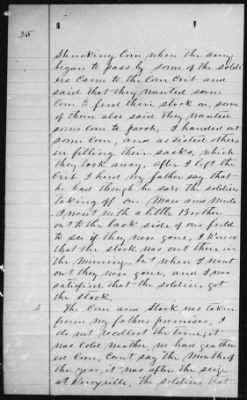 Shucking Corn when the army
began to pass by some of the soldi
ers came to the Corn Crib and
said that they wanted some
Corn to feed their stock on, some
of them also said they wanted
some corn to parch, I handed out
some Corn, and assisted them
in filling their sacks, which
they took away, after I left the
Crib I herd my father say that
he had though he saw the soldiers
taking off our Mare and Mule
I went with a little Brother
out to the back side of our field
to see if they were gone, I knew
that the stock was out there in
the Morning, but when I went
out they were gone, and I was
satisfied that the soldiers got
the stock,
The Corn and Stock was taken
from my fathers premises, I
do not recollect the time, it
was Cold weather, we had gathered
ed Corn, Cant say the Month of
the year, it was after the seige
at Knoxville, The soldiers that